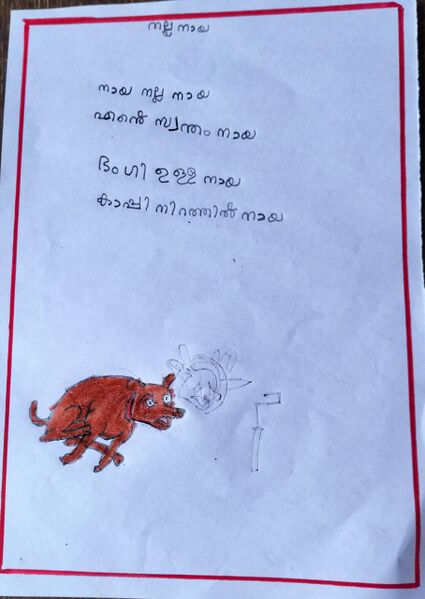 നല്ല നായ
നായ നല്ല നായ
എന്റെ സ്വന്തം നായ
ഭംഗി ഉള്ള നായ
കാപ്പി നിറത്തിൽ നായ